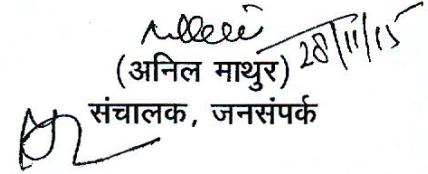 28/11/15
(अनिल माथुर)
संचालक, जनसंपर्क